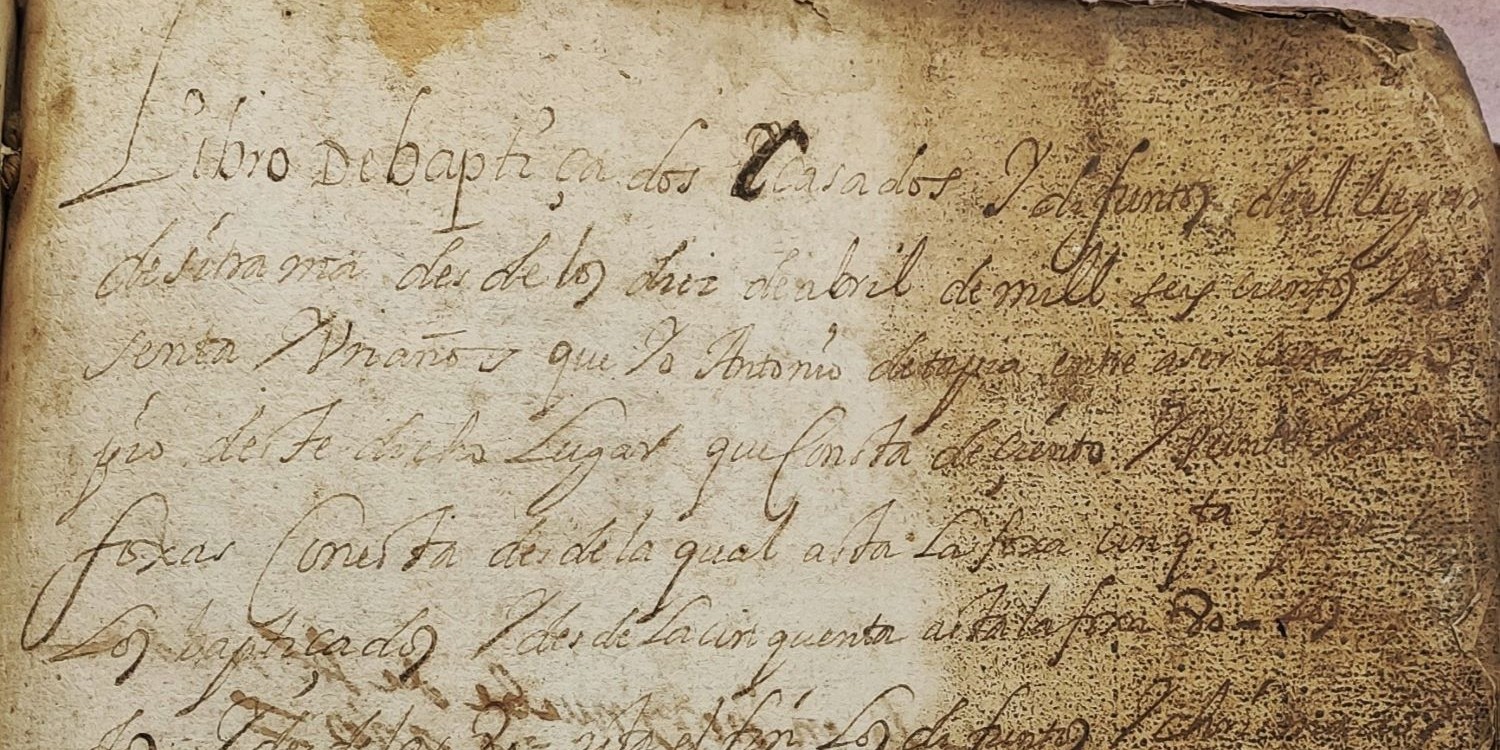 Libro De bapticados Y Casados Y difuntos del lugar
de sitrama desde los diez de abril de mill seyscientos
senta Y Un años que Yo Antonio de tapia entre a ser
pio deste dicho Lugar que Consta de çiento Y Veinte
foxas Con esta desde la qual asta La foxa cinqta
Los baptiçados Y desde La cinquenta asta la foxa 80 - Los
Y desde las asta el fin Los difuntos Y